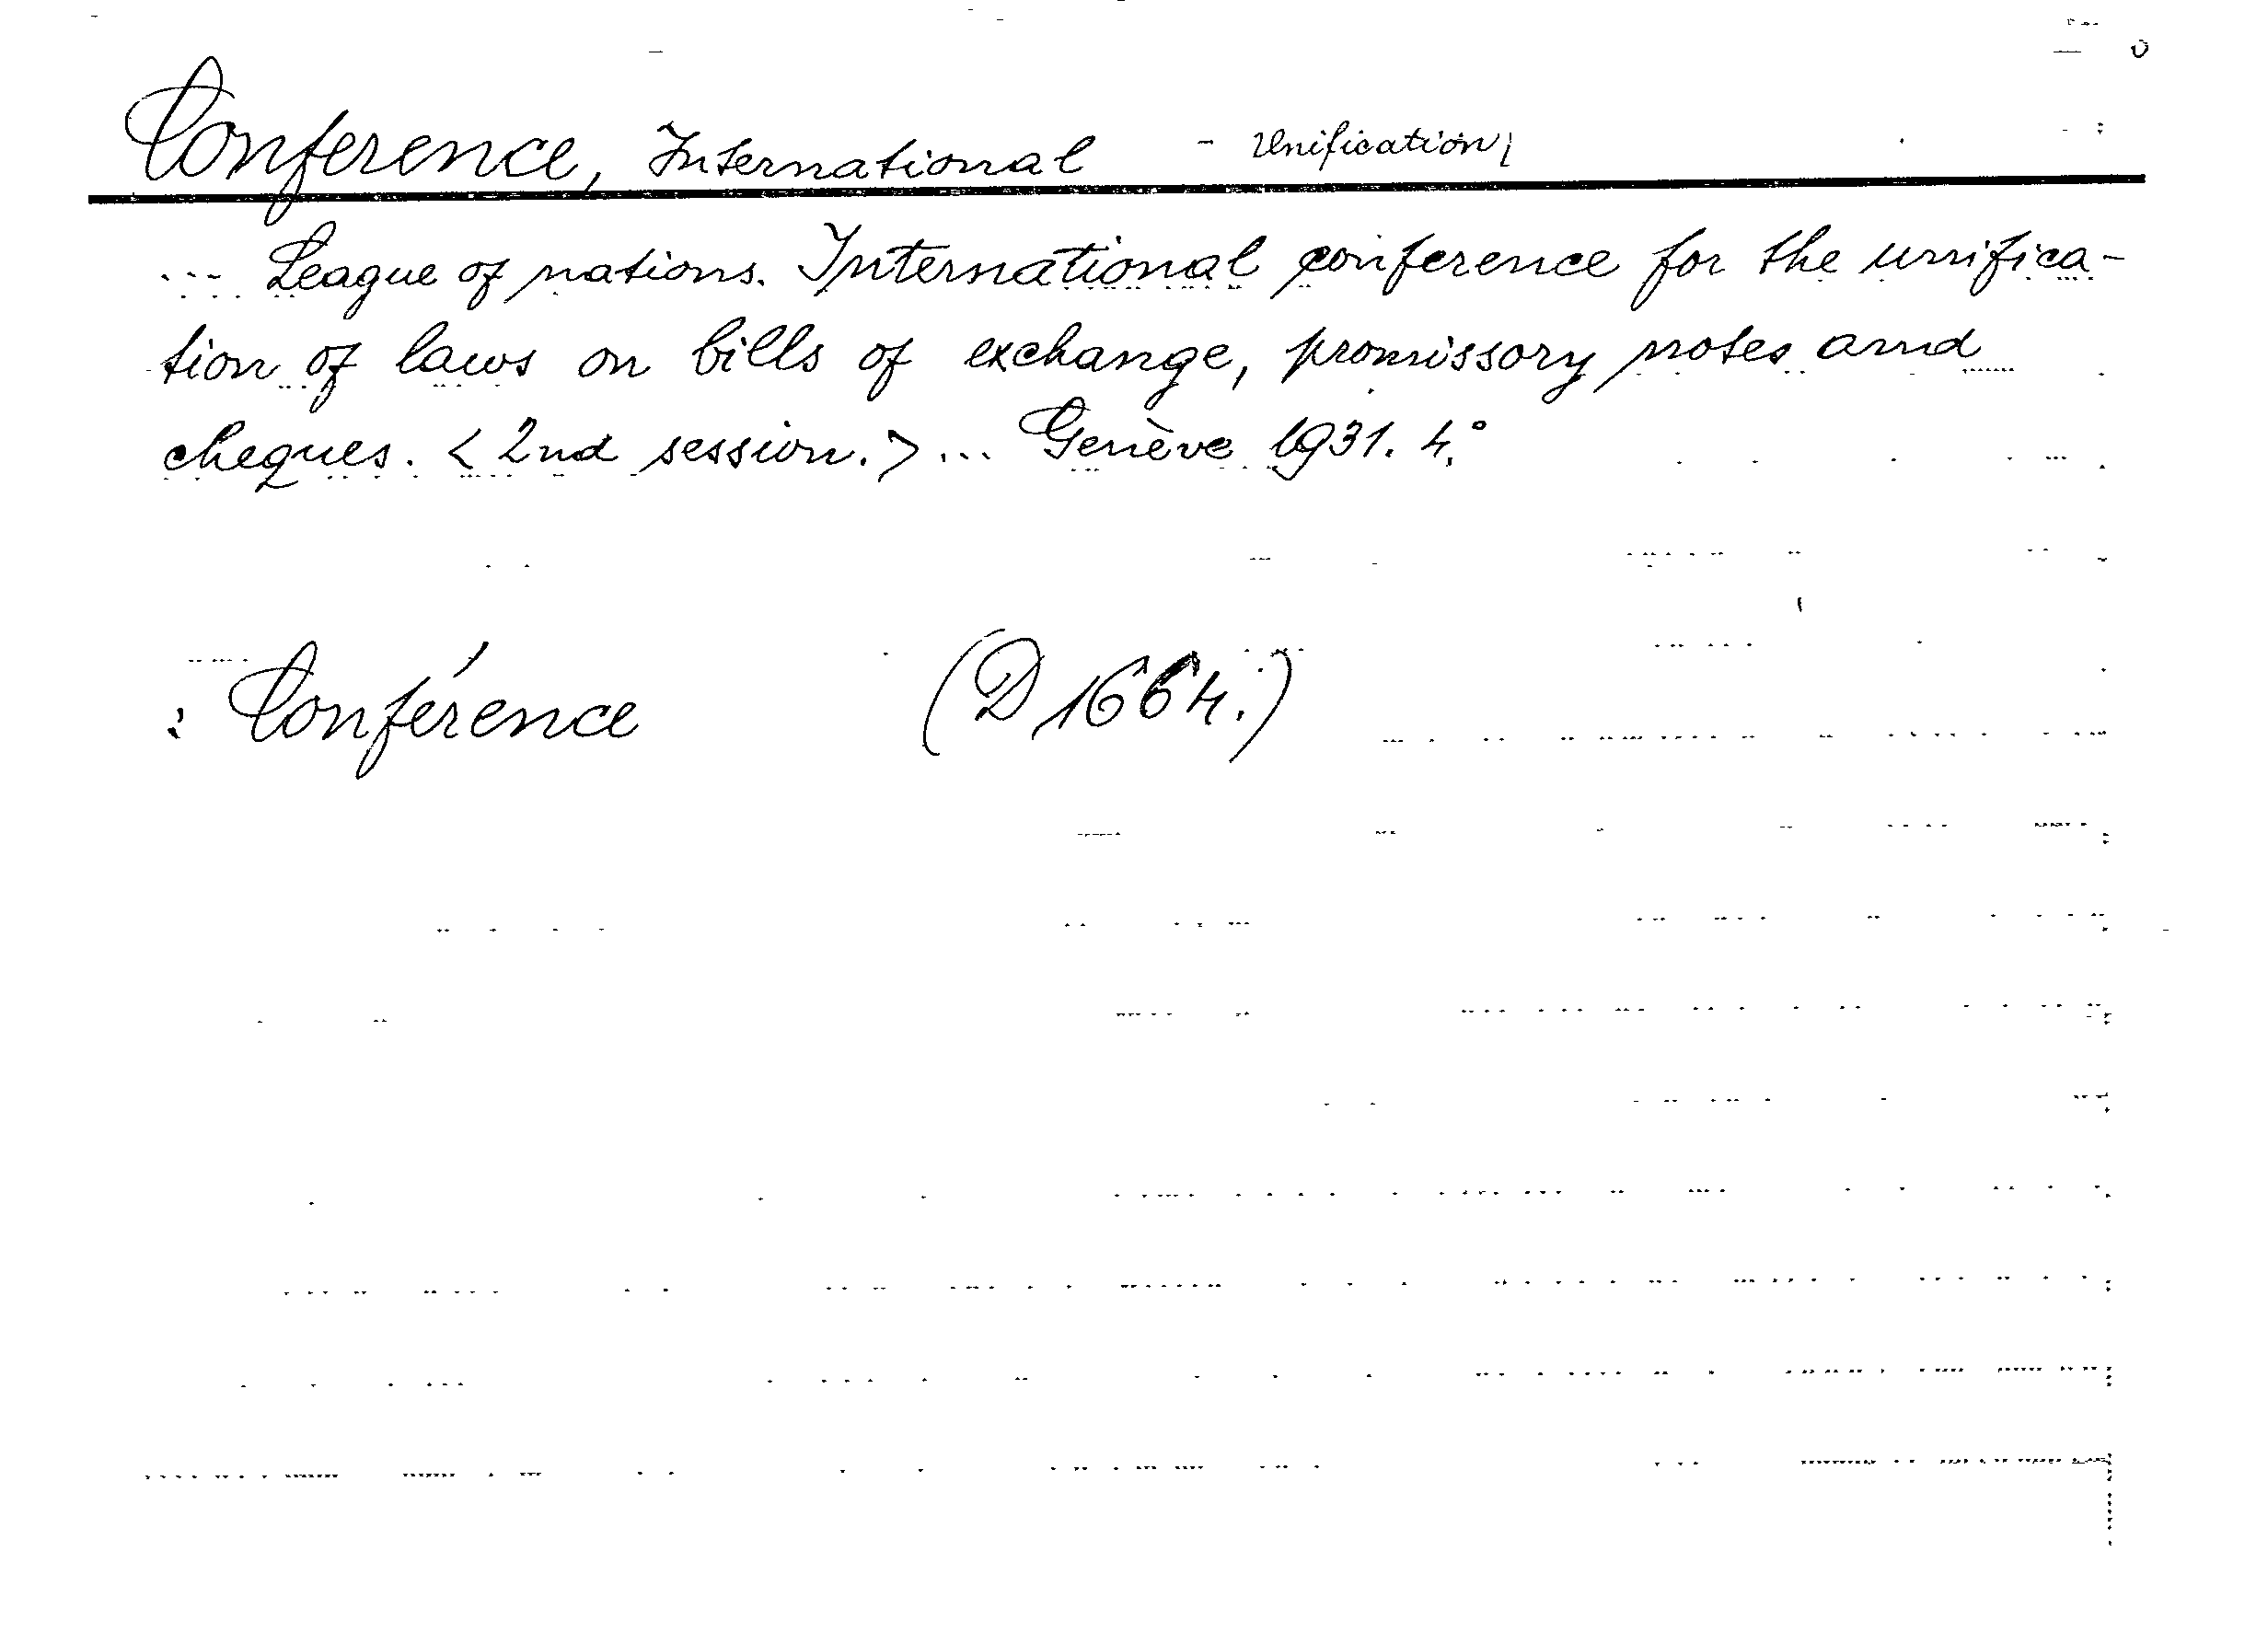 Conference, International - Unification,
... League of nations. International conference for the unifica-
tion of laws on bills of exchange, promissory notes and
cheques. < 2nd session. > ... Genève 1931. 4.°
: Conférence (D 1664.)